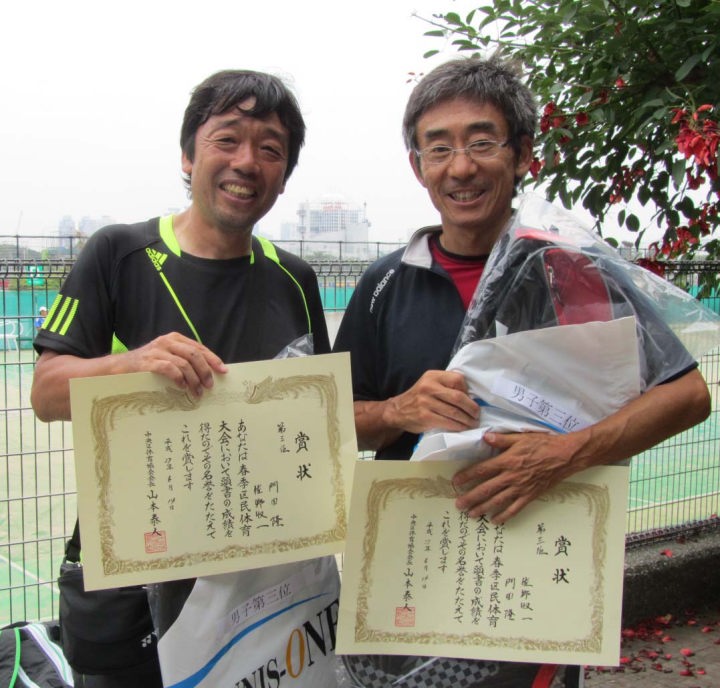 adidas
new balance
賞状
第三位
門田 隆
佐野 收一
あなたは春季区民体育
大会において頭書の成績を
得たのでその名誉をたたえて
これを賞します
中央区体育協会会長 山本泰人
男子第三位
NIS-ONE
賞状
第三位
佐野 收一
門田 隆
あなたは春季区民体育
大会において頭書の成績を
得たのでその名誉をたたえて
これを賞します
中央区体育協会会長 山本泰人
男子第三位